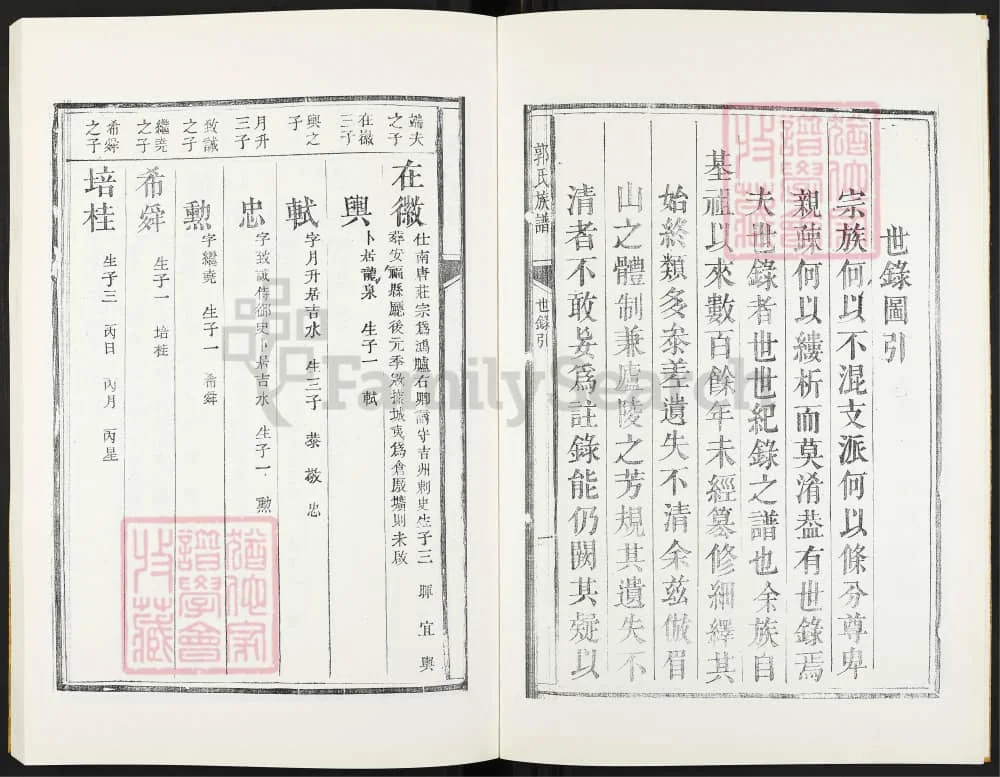 世錄圖引
宗族何以不混支派何以條分尊卑
親疎何以縷析而莫淆葢有世錄焉
夫世錄者世世紀錄之譜也余族自
基祖以來數百餘年未經纂修細繹其
始終類多叅差遺失不清余茲倣眉
山之體制兼廬陵之芳規其遺失不
清者不敢妄爲註錄能仍闕其疑以
郭氏族譜
世錄引
一
端夫之子
在徽 仕南唐莊宗爲鴻臚右卿謫守吉州刺史生子三 暉 宜 興
葬安福縣廳後元季 據城夷爲倉廒壙則未啟
在徽三子
興 卜居龍泉 生子一 軾
興之子
軾 字月升居吉水 生三子 泰 敬 忠
月升三子
忠 字致誠侍御史卜居吉水 生子一 勲
致誠之子
勲 字繼堯 生子一 希舜
繼堯之子
希舜 生子一 培桂
希舜之子
培桂 生子三 丙日 丙月 丙星
猶他家譜學會收藏
猶他家譜學會收藏
FamilySearch